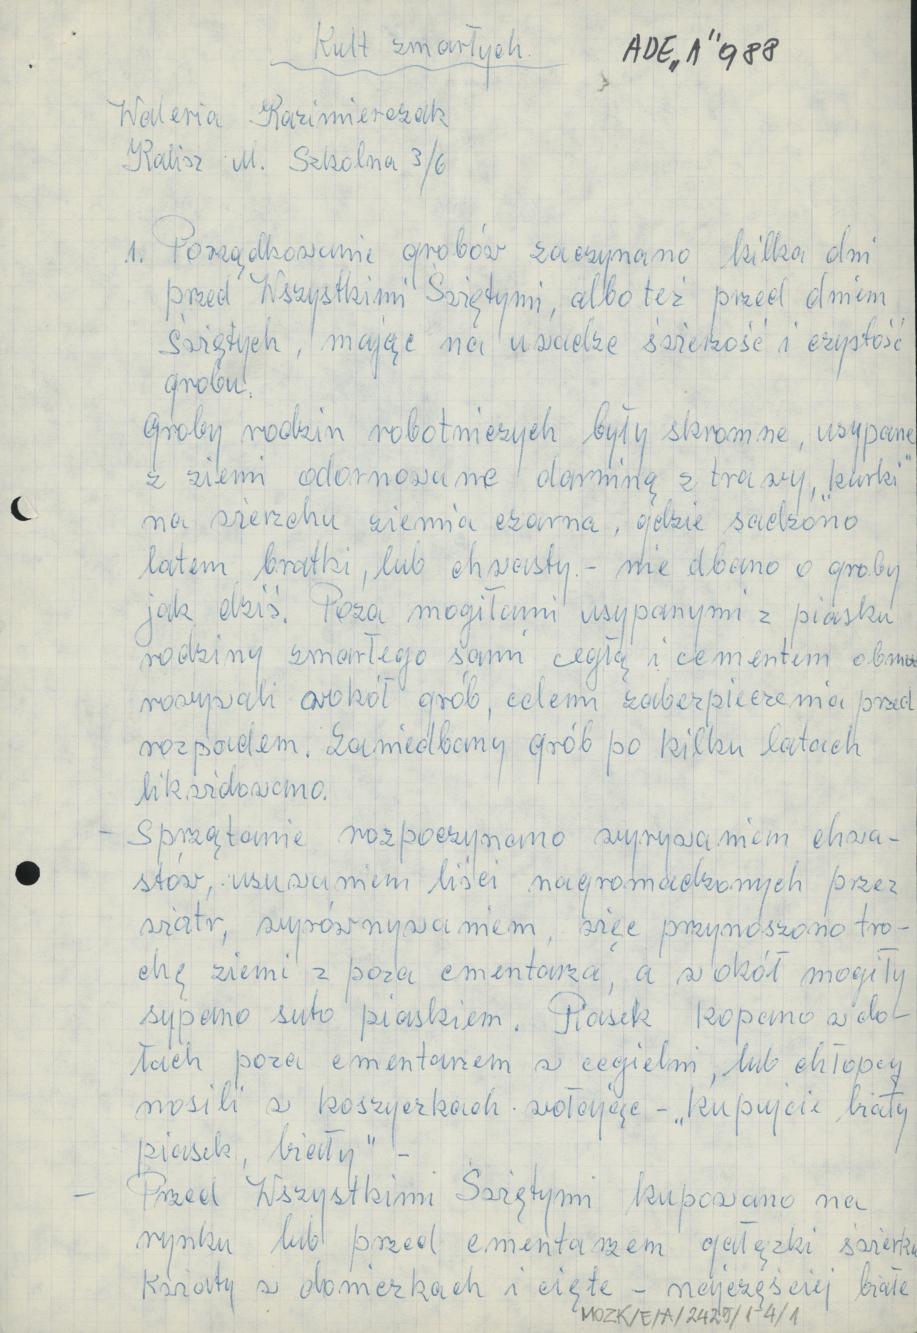 Kult zmarłych.
ADE„A" 988
Waleria Kazimierczak
Kalisz ul. Szkolna 3/6
1. Porządkowanie grobów zaczynano kilka dni
przed Wszystkimi Świętymi, albo też przed dniem
Świętych, mając na uwadze świeżość i czystość
grobu.
Groby rodzin robotniczych były skromne, usypane
z ziemi odarnowane darniną z trawy, „kurki"
na wierzchu ziemia czarna, gdzie sadzono
latem bratki, lub chwasty. - nie dbano o groby
jak dziś. Poza mogiłami usypanymi z piasku
rodziny zmarłego sami cegłą i cementem obmu
rowywali wokół grób, celem zabezpieczenia przed
rozpadem. Zaniedbany grób po kilku latach
likwidowano.
- Sprzątanie rozpoczynano wyrywaniem chwa-
stów, usuwaniem liści nagromadzonych przez
wiatr, wyrównywaniem, więc przynoszono tro-
chę ziemi z poza cmentarza, a wokół mogiły
sypano suto piaskiem. Piasek kopano w do-
łach poza cmentarzem w cegielni, lub chłopcy
nosili w koszyczkach wołając - „kupujcie biały
piasek, biały" -
- Przed Wszystkimi Świętymi kupowano na
rynku lub przed cmentarzem gałązki świerku
kwiaty w doniczkach i cięte - najczęściej białe
MOZK/E/A/2425/1-4/1